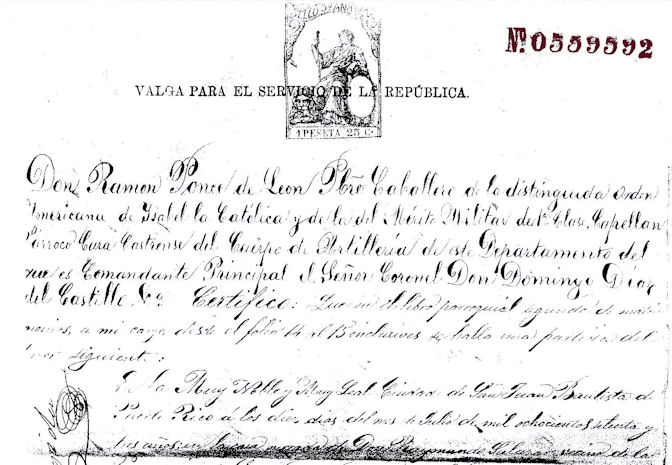 SELLO 9º AÑO
Nº 0559592
VALGA PARA EL SERVICIO DE LA REPÚBLICA.
1 PESETA 25 C.
Don Ramon Ponce de Leon Pbro Caballero de la distinguida orden
Americana de Isabel la Católica y de la del Mérito Militar de 1ª Clase, Capellan
Parroco Cura Castrense del Cuerpo de Artillería de este Departamento del
que es Comandante Principal el Señor Coronel Don Domingo Díaz
del Castillo Certifico: Que en el libro parroquial segundo de matri-
monios, a mi cargo desde el folio 14 al 15 inclusives se halla una partida del
tenor siguiente:
En la Muy Noble y Muy Leal Ciudad de San Juan Bautista de
Puerto Rico á los diez dias del mes de Julio de mil ochocientos setenta y
tres años, en la de Don vecino de la